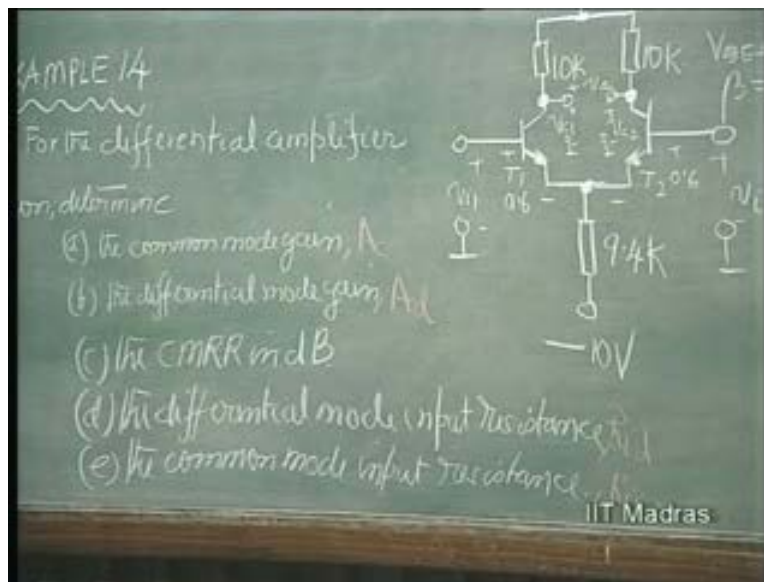 XAMPLE 14
For the differential amplifier
on, determine
(a) the common mode gain, A
(b) the differential mode gain, Ad
(c) the CMRR in dB
(d) the differential mode input resistance,
(e) the common mode input resistance
10K
10K
VBE
β=
T1
0.6
T2 0.6
+
-
+
-
vi1
vi
9.4K
-10V
IIT Madras